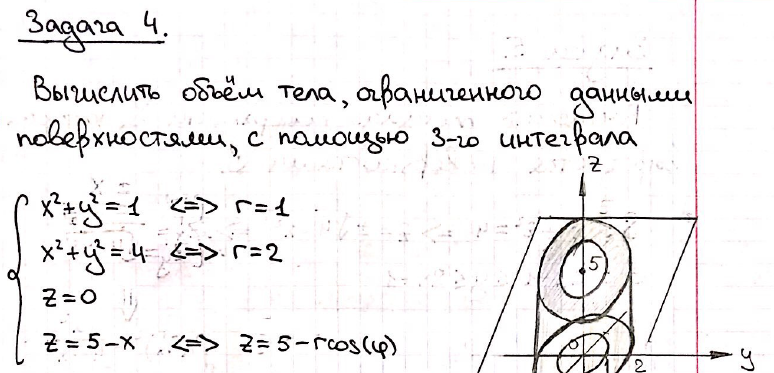 Задача 4.
Вычислить объём тела, ограниченного данными
поверхностями, с помощью 3-го интеграла
x²+y²=1 <=> r=1
x²+y²=4 <=> r=2
z=0
z=5-x <=> z=5-rcos(φ)
z
5
0
1 2 y